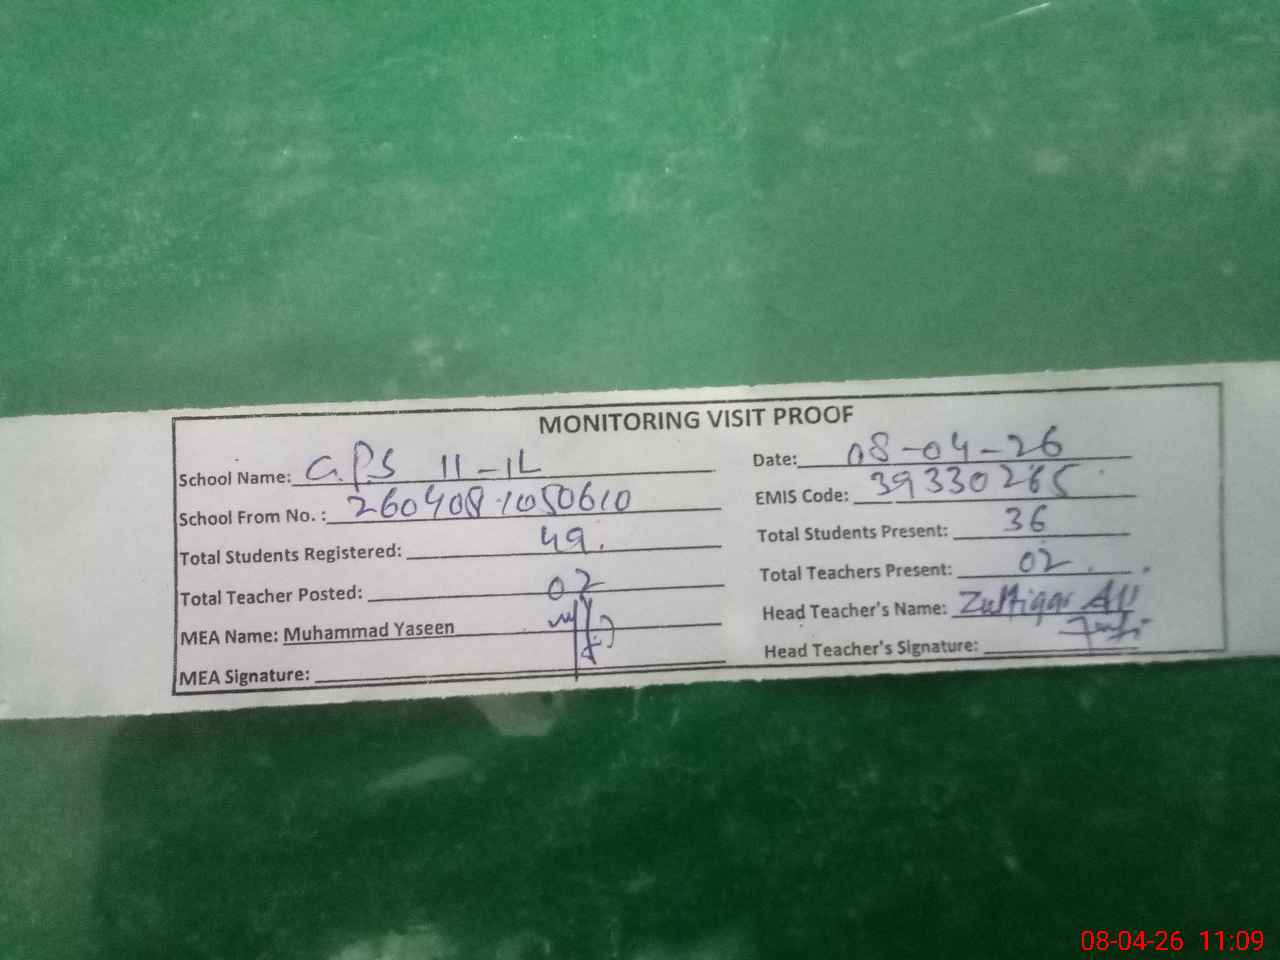 MONITORING VISIT PROOF
School Name: G.P.S 11-1L
Date: 08-04-26
School From No. : 2604081050610
EMIS Code: 39330265
Total Students Registered: 49.
Total Students Present: 36
Total Teacher Posted: 02
Total Teachers Present: 02
MEA Name: Muhammad Yaseen
Head Teacher's Name: Zulfiqar Ali
MEA Signature:
Head Teacher's Signature:
08-04-26 11:09